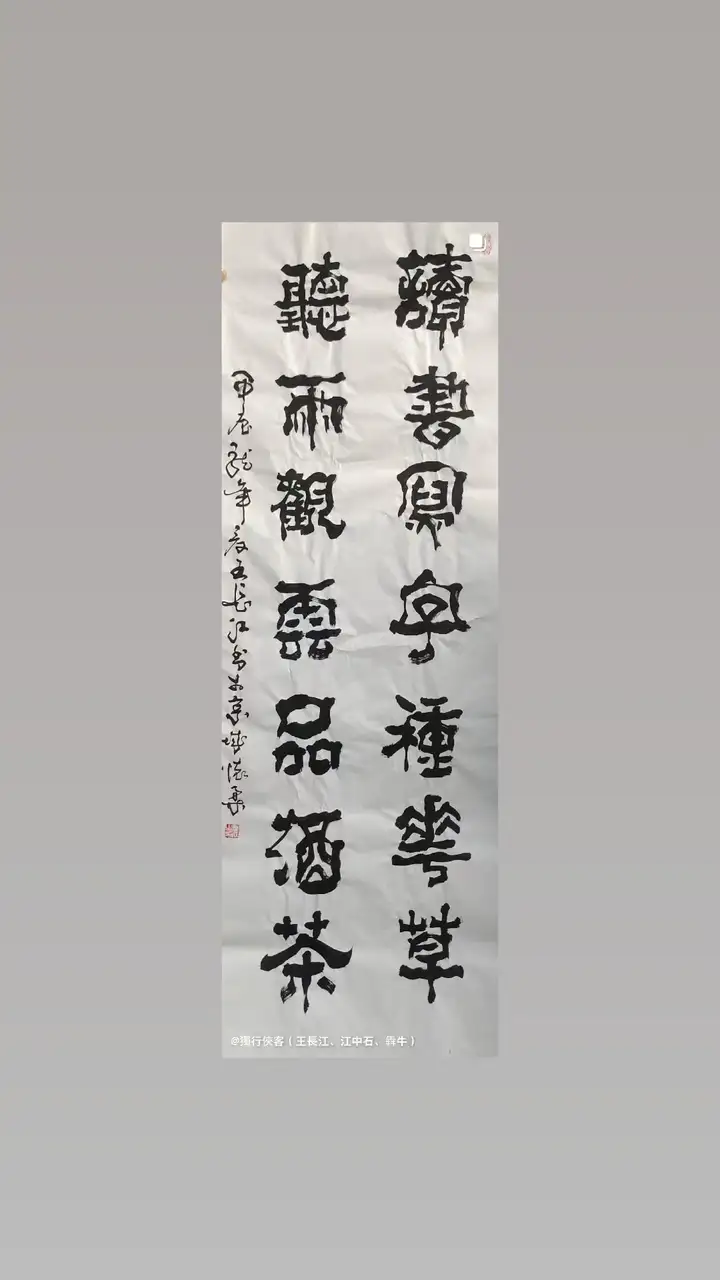 讀書寫字種花草
聽雨觀雲品酒茶
甲辰龍年夏王長江書於京城懷柔
@獨行俠客（王長江、江中石、犇牛）